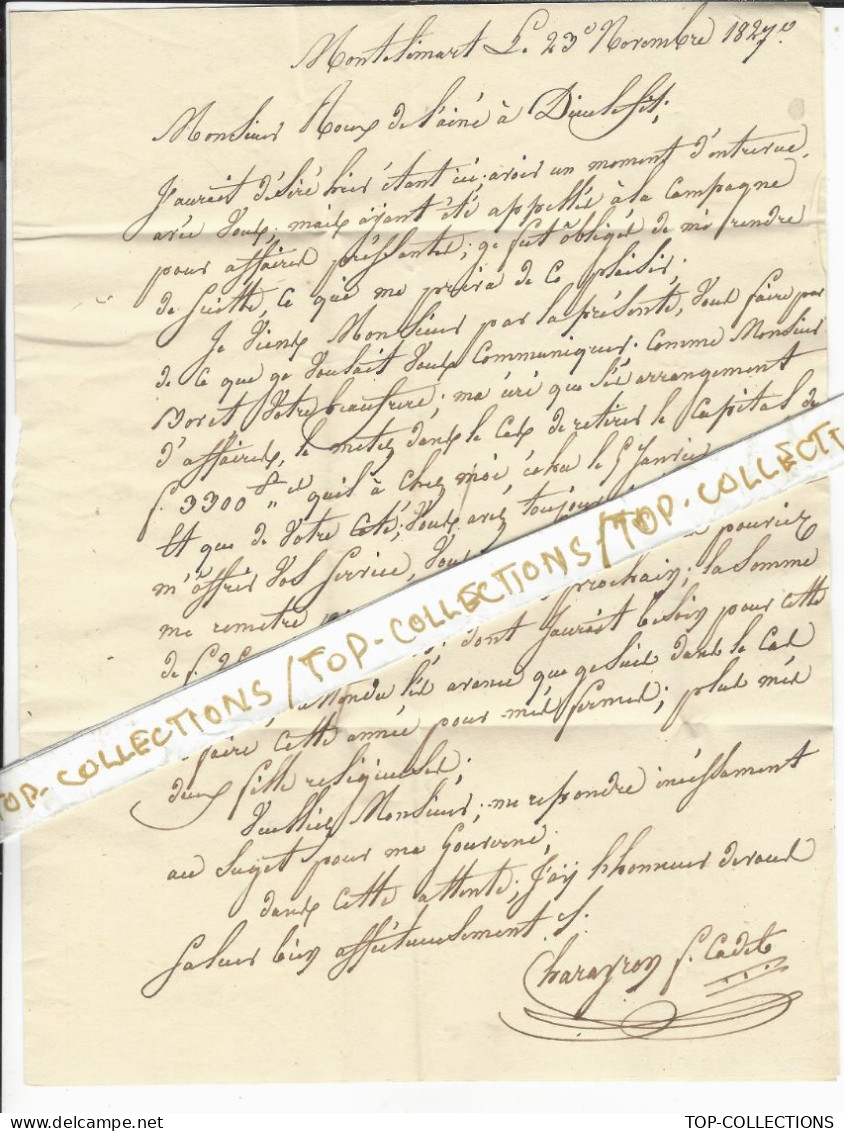 Montelimart Le 23e Novembre 1827.
Monsieur Roux de l'ainé à Dieulefit;
J'aurait désiré hier étant ici, avoir un moment d'entrevue
avéc Vous; maix ayant été appellée à la Campagne
pour affaires préssantes; je fut obligée de me rendre
de suitte, ce que me priva de ce plaisir;
Je Viens Monsieur par la présente, Vous faire par
de ce que je Voulait Vous Communiquer. Comme Monsieur
Votre beaufrere; ma écri que sés arrangement
d'affaires, le metez dans le Cas de retirer le Capital de
f. 3300 quil à chez moi, écha le 5 Janvier
Et que de Votre Coté, Vous avez toujours
m'offrir Vos Service, Vous pouriez
me remetre prochain; la Somme
de f. dont J'aurait besoin pour cette
sés avance que je suis dans le Cas
faire cette année pour més fermes; plus més
deux fille religieuses;
Veuilliez Monsieur; me repondre incéssament
au Sujet pour ma Gouverne;
dans cette attente, J'ay l'honneur de vous
Saluer bien afféctueusement
Charayron f. Cadet
TOP-COLLECTIONS / TOP-COLLECTIONS / TOP-COLLECTIONS
TOP-COLLECTIONS